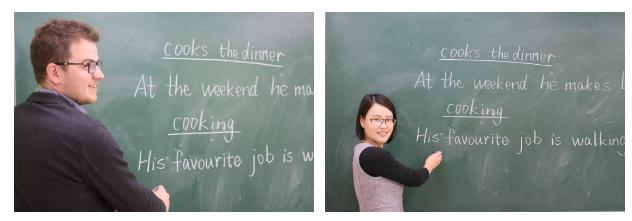 cooks the dinner
At the weekend he ma
cooking
His favourite job is w
cooks the dinner
At the weekend he makes
cooking
His favourite job is walking